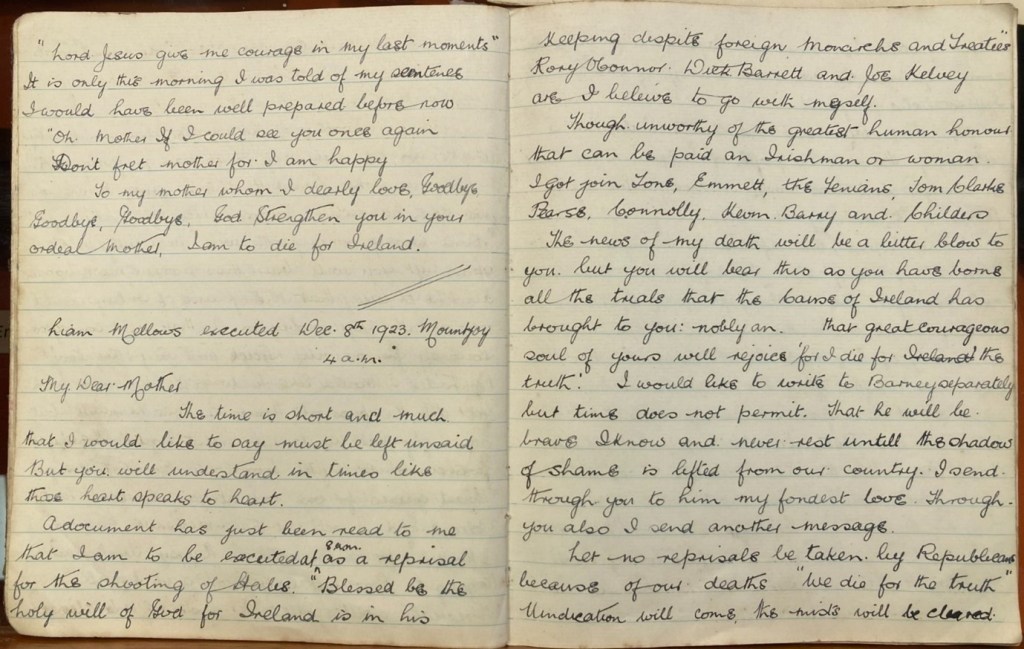 "Lord Jesus give me courage in my last moments"
It is only this morning I was told of my sentence
I would have been well prepared before now
"Oh. Mother If I could see you once again
Don't fret mother for I am happy
To my mother whom I dearly love, Goodbye,
Goodbye, Goodbye. God Strengthen you in your
ordeal Mother, I am to die for Ireland.
Liam Mellows executed Dec. 8th 1923. Mountjoy
4 a.m.
My Dear Mother
The time is short and much
that I would like to say must be left unsaid
But you will understand in times like
those heart speaks to heart.
A document has just been read to me
that I am to be executed at 8 mor. as a reprisal
for the shooting of Hales. "Blessed be the
holy will of God for Ireland is in his
Keeping despite foreign Monarchs and Treaties"
Rory O'Connor. Dick Barrett and Joe Kelvey
are I believe to go with myself.
Though unworthy of the greatest human honour
that can be paid an Irishman or woman.
I got join Tone, Emmett, the Fenians, Tom Clarke
Pearse, Connolly, Kevin Barry and Childers
The news of my death will be a bitter blow to
you. but you will bear this as you have borne
all the trials that the Cause of Ireland has
brought to you: nobly an. that great courageous
soul of yours will rejoice 'for I die for Ireland' the
truth'. I would like to write to Barney separately
but time does not permit. That he will be
brave I know and never rest untill the shadow
of shame is lifted from our country. I send
through you to him my fondest love. Through
you also I send another message.
Let no reprisals be taken by Republicans
because of our deaths "We die for the truth"
Vindication will come, the mists will be cleared.